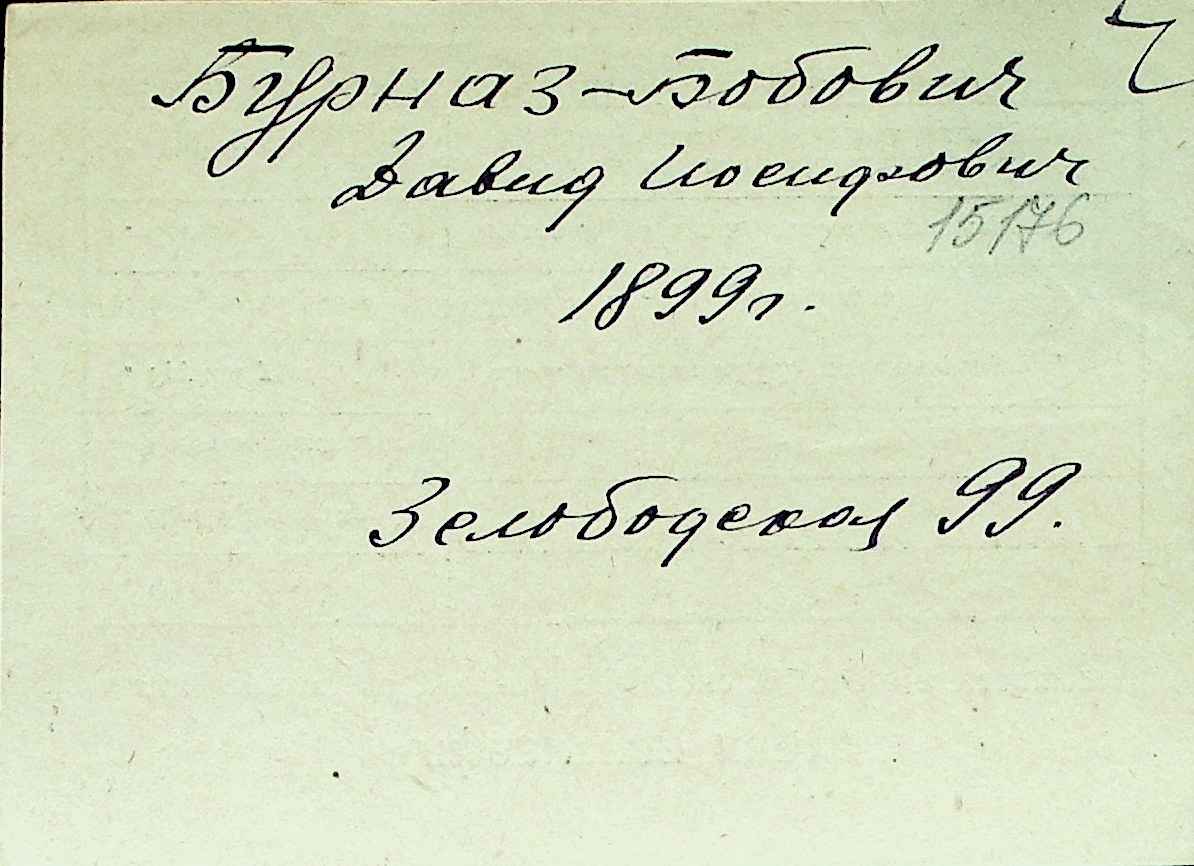 Бурназ-Бобович
Давид Иосифович
15176
1899г.
Зелободская 99.